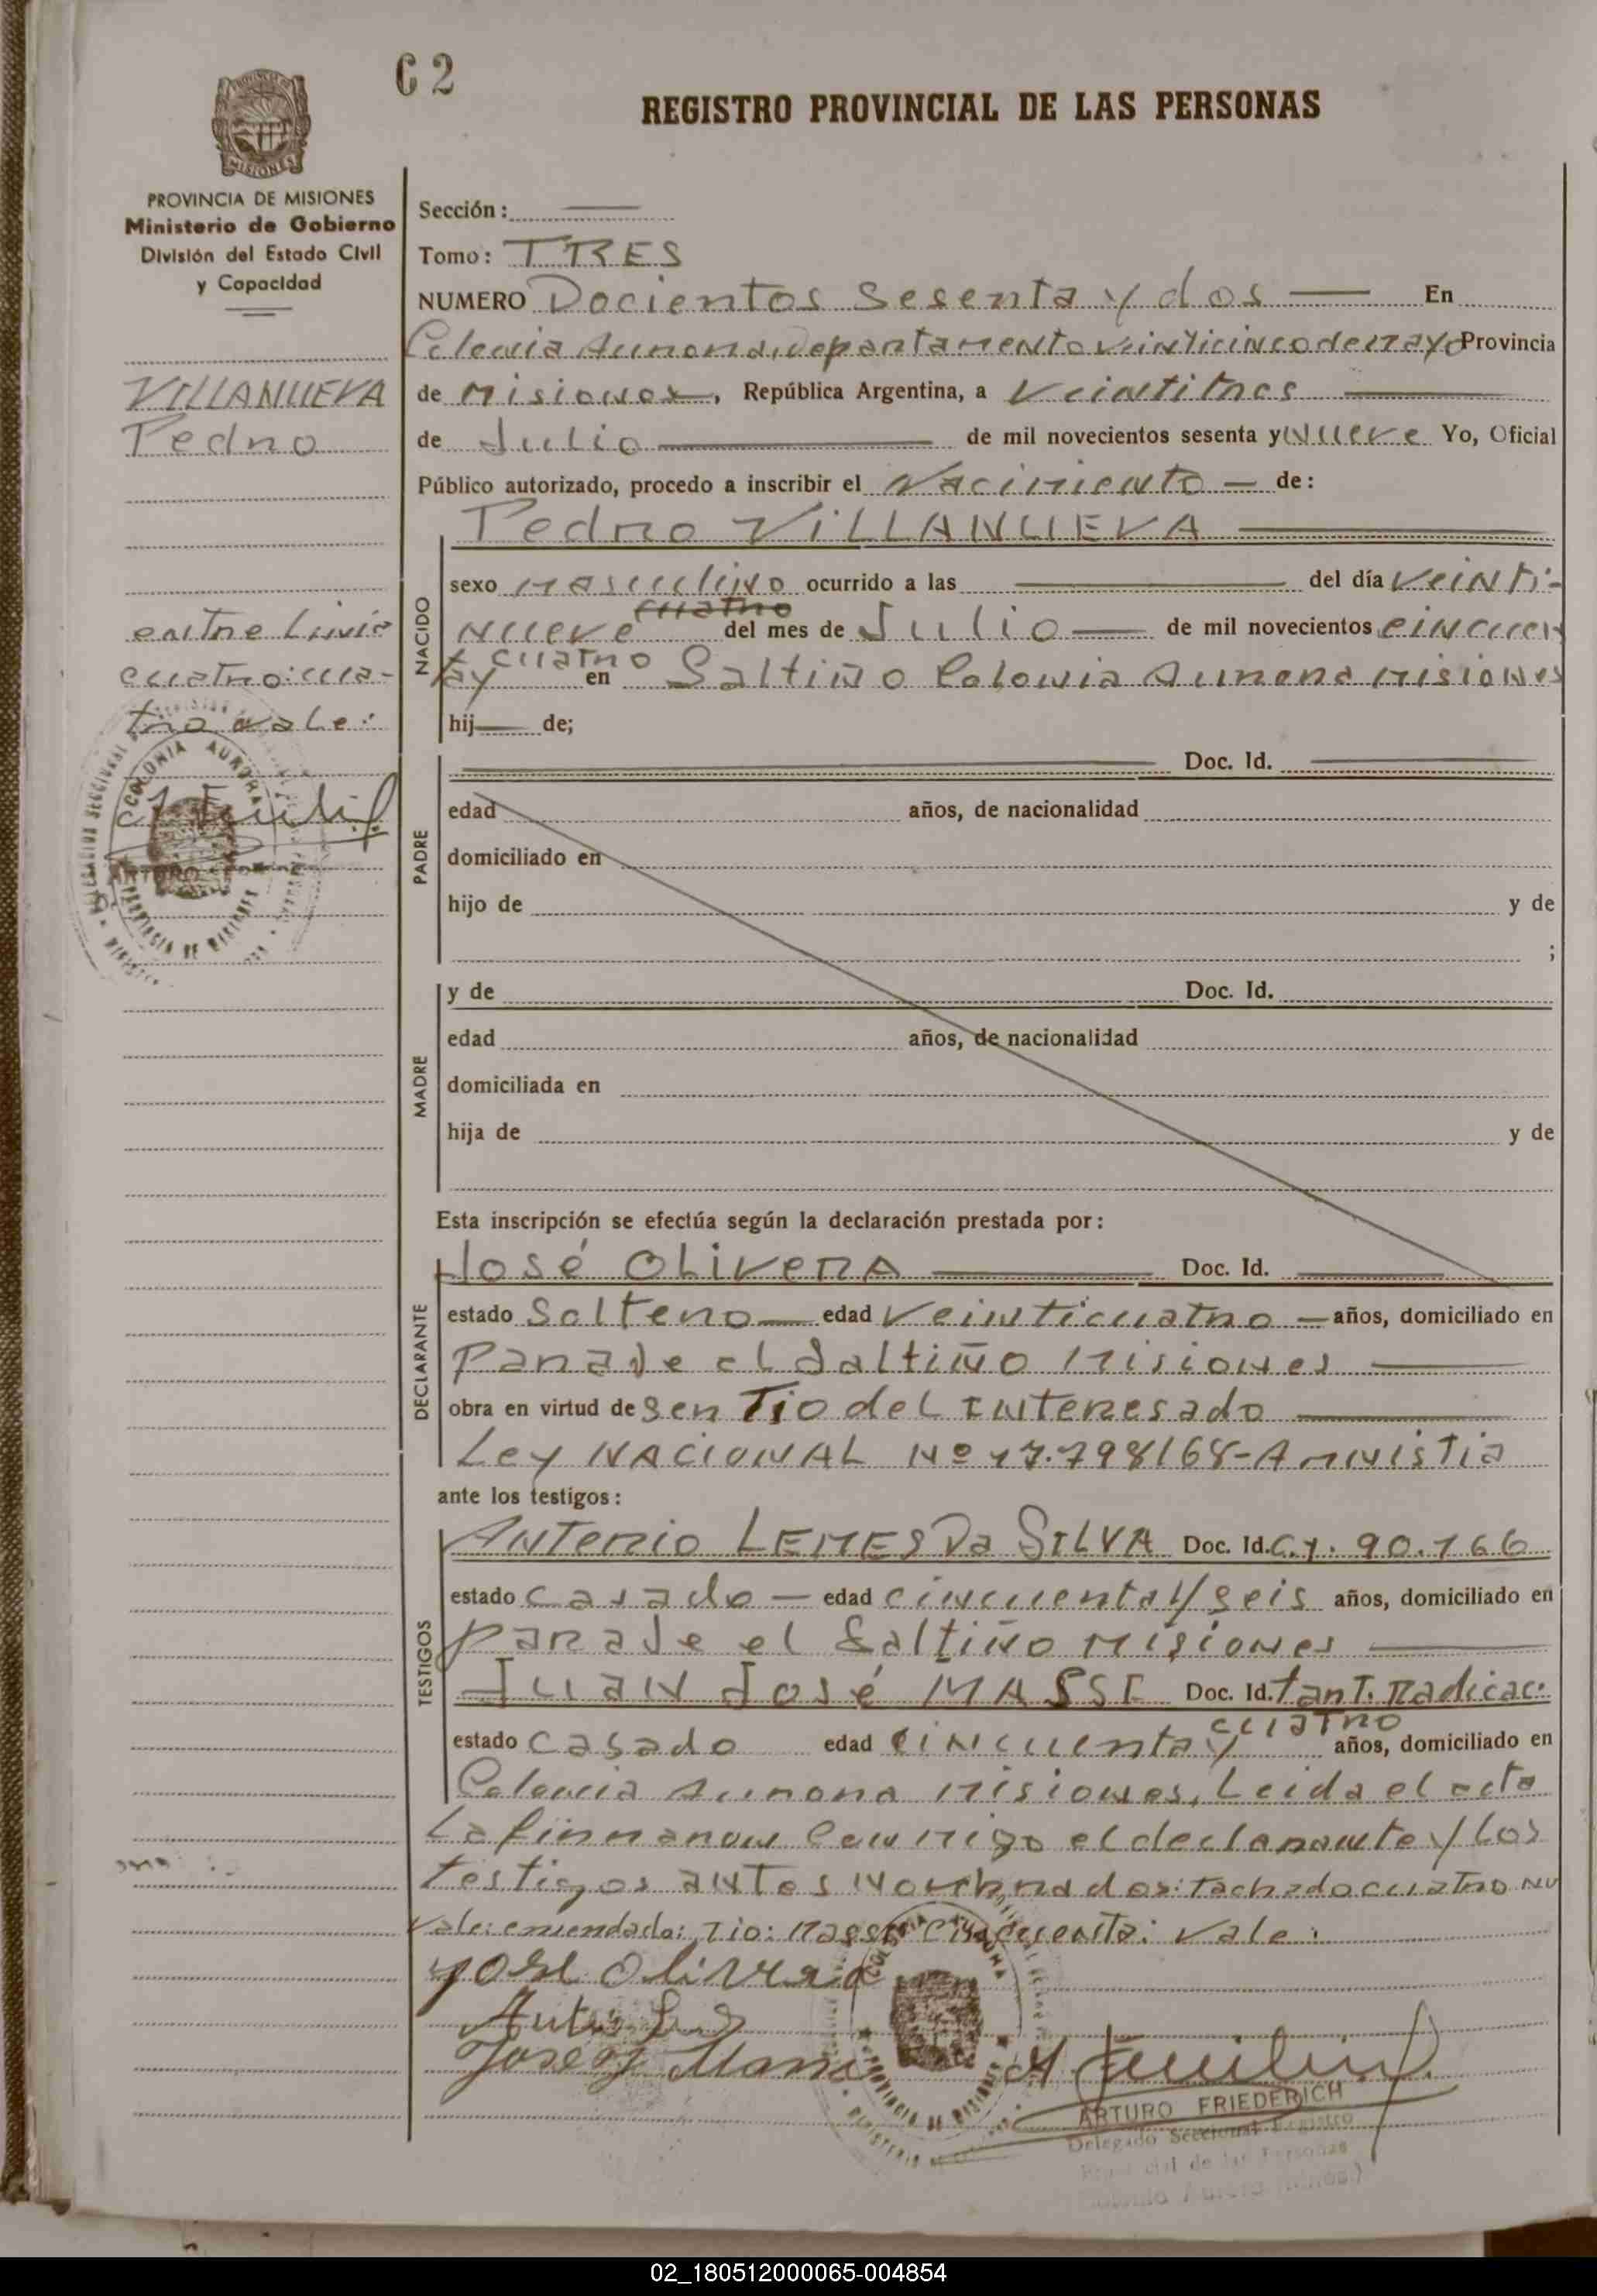 C 2
REGISTRO PROVINCIAL DE LAS PERSONAS
MISIONES
PROVINCIA DE MISIONES
Ministerio de Gobierno
División del Estado Civil
y Capacidad
VILLANUEVA
Pedro
entre linia
cuatro: cua-
tro vale:
COLONIA AURORA
PROVINCIA DE MISIONES
ARTURO
Sección:
Tomo: TRES
NUMERO Docientos Sesenta y dos En
Colonia Aurora, Departamento veinticinco de mayo Provincia
de Misiones, República Argentina, a Veintitres
de Julio de mil novecientos sesenta y Nueve Yo, Oficial
Público autorizado, procedo a inscribir el Nacimiento de:
Pedro VILLANUEVA
NACIDO
sexo Masculino ocurrido a las del día Veinti-
cuatro
nueve del mes de Julio de mil novecientos cincuen
ta y cuatro en Saltiño Colonia Aurora Misiones
hij de;
PADRE
Doc. Id.
edad años, de nacionalidad
domiciliado en
hijo de y de
;
MADRE
y de Doc. Id.
edad años, de nacionalidad
domiciliada en
hija de y de
Esta inscripción se efectúa según la declaración prestada por:
DECLARANTE
José Olivera Doc. Id.
estado Soltero edad Veinticuatro años, domiciliado en
Paraje el Saltiño Misiones
obra en virtud de ser Tio del Interesado
Ley NACIONAL Nº 17.798/68-Amnistia
ante los testigos:
TESTIGOS
Antonio LEMES Da SILVA Doc. Id. C.Y. 90.166
estado Casado edad cincuenta y seis años, domiciliado en
paraje el Saltiño Misiones
Juan José MASSI Doc. Id. Tart. Radicac.
estado Casado edad cincuenta y cuatro años, domiciliado en
Colonia Aurora Misiones, Leida el acta
La firmaron conmigo el declarante y los
testigos antes nombrados: tachado cuatro no
vale: enmendado: Tio: Massi cincuenta: vale:
José Olivera
ARTURO FRIEDERICH
Delegado Seccional Registro
Provincial de las Personas
Colonia Aurora (Mnes.)
02_180512000065-004854